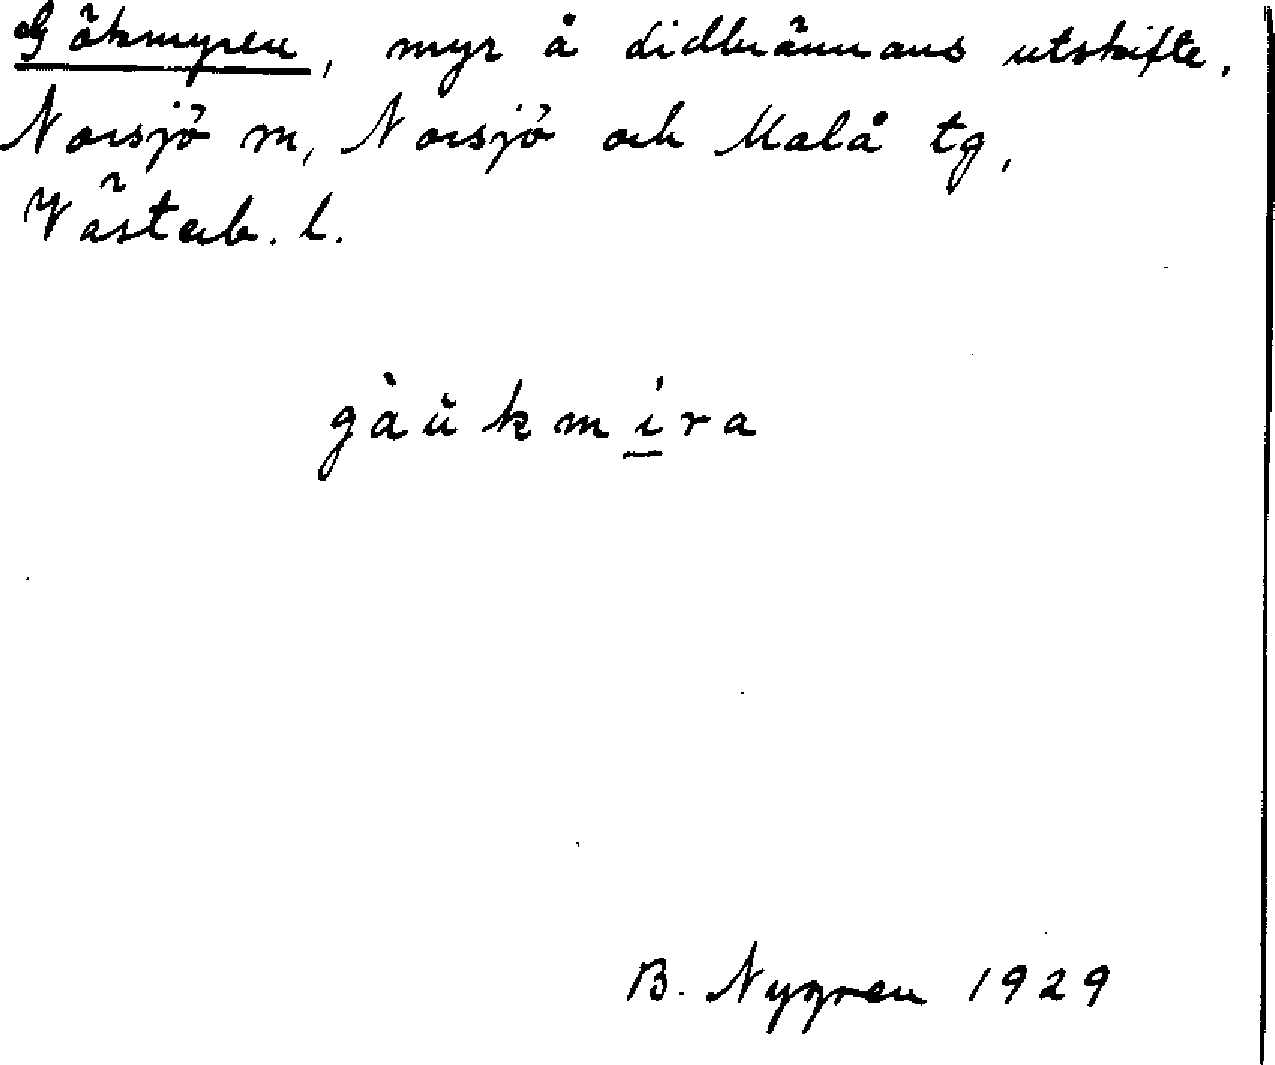 Gökmyren, myr å Lidbrännans utskifte,
Norsjö sn, Norsjö och Malå tg,
Västerb. l.
gàŭkmíra
B. Nygren 1929